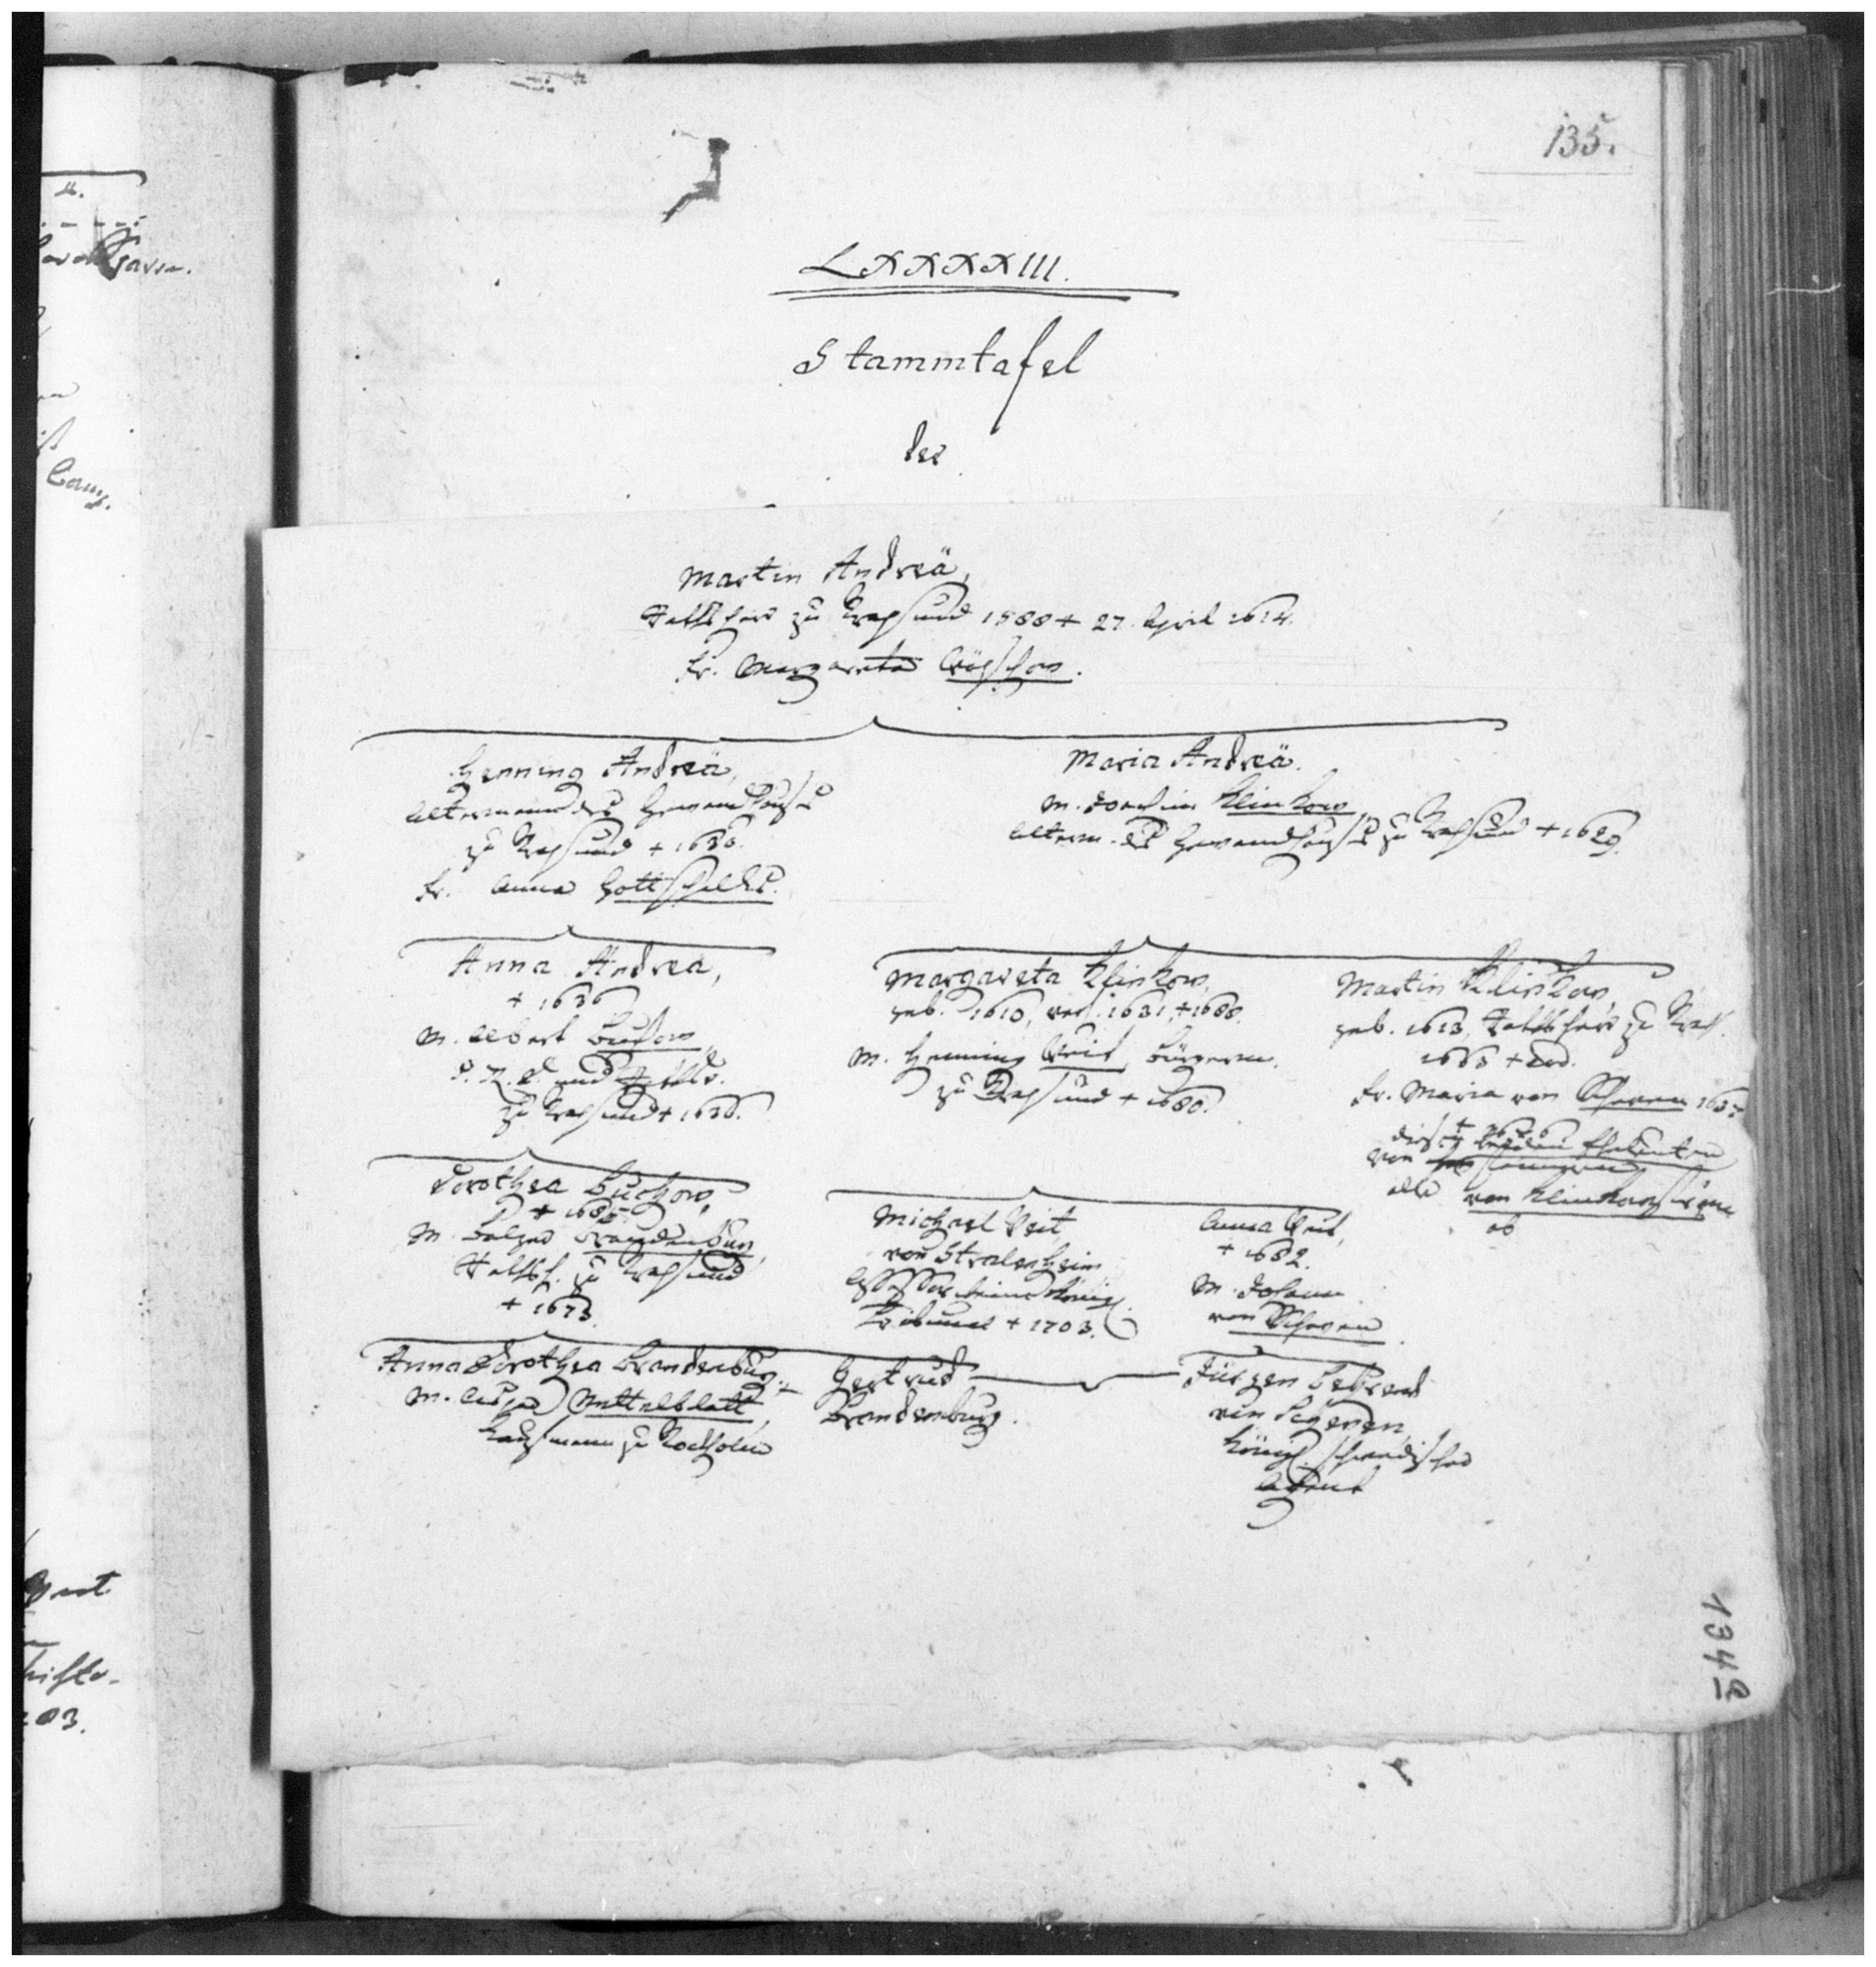 135.
LXXXXIII.
Stammtafel
der
Martin Andreä,
Rathsherr zu Stralsund 1588 + 27. April 1614.
Fr. Margareta
Henning Andreä,
Altermann des Gewandhauses
zu Stralsund + 1636.
Fr. Anna Gottschalks.
Maria Andreä.
m. Joachim Klinkow
Alterm. des Gewandhauses zu Stralsund + 1629.
Anna Andreä,
+ 1636
m. Albert Buchow,
und Rathsh.
zu Stralsund + 1636.
Margareta Klinkow,
geb. 1610, verh. 1631, + 1688.
m. Henning Veit, Bürgerm.
zu Stralsund + 1680.
Martin Klinkow,
geb. 1613, Rathsherr zu Strals.
1663 + eod.
Fr. Maria von Scheven 1637
von
alle von Klinkowström
ab
Dorothea Buchow,
+ 1685.
m. Balzer Brandenburg,
Rathsh. zu Stralsund
+ 1673.
Michael Veit
von Stralenheim
Assessor beim Königl.
Tribunal + 1703.
Anna Veit,
+ 1682.
m. Johann
von Scheven
Anna Dorothea Brandenburg.
m. Casper Nettelblatt,
Kaufmann zu Stockholm
Gertrud
Brandenburg.
Jürgen Behrend
von Scheven,
Königl. schwedischer
Agent
134a